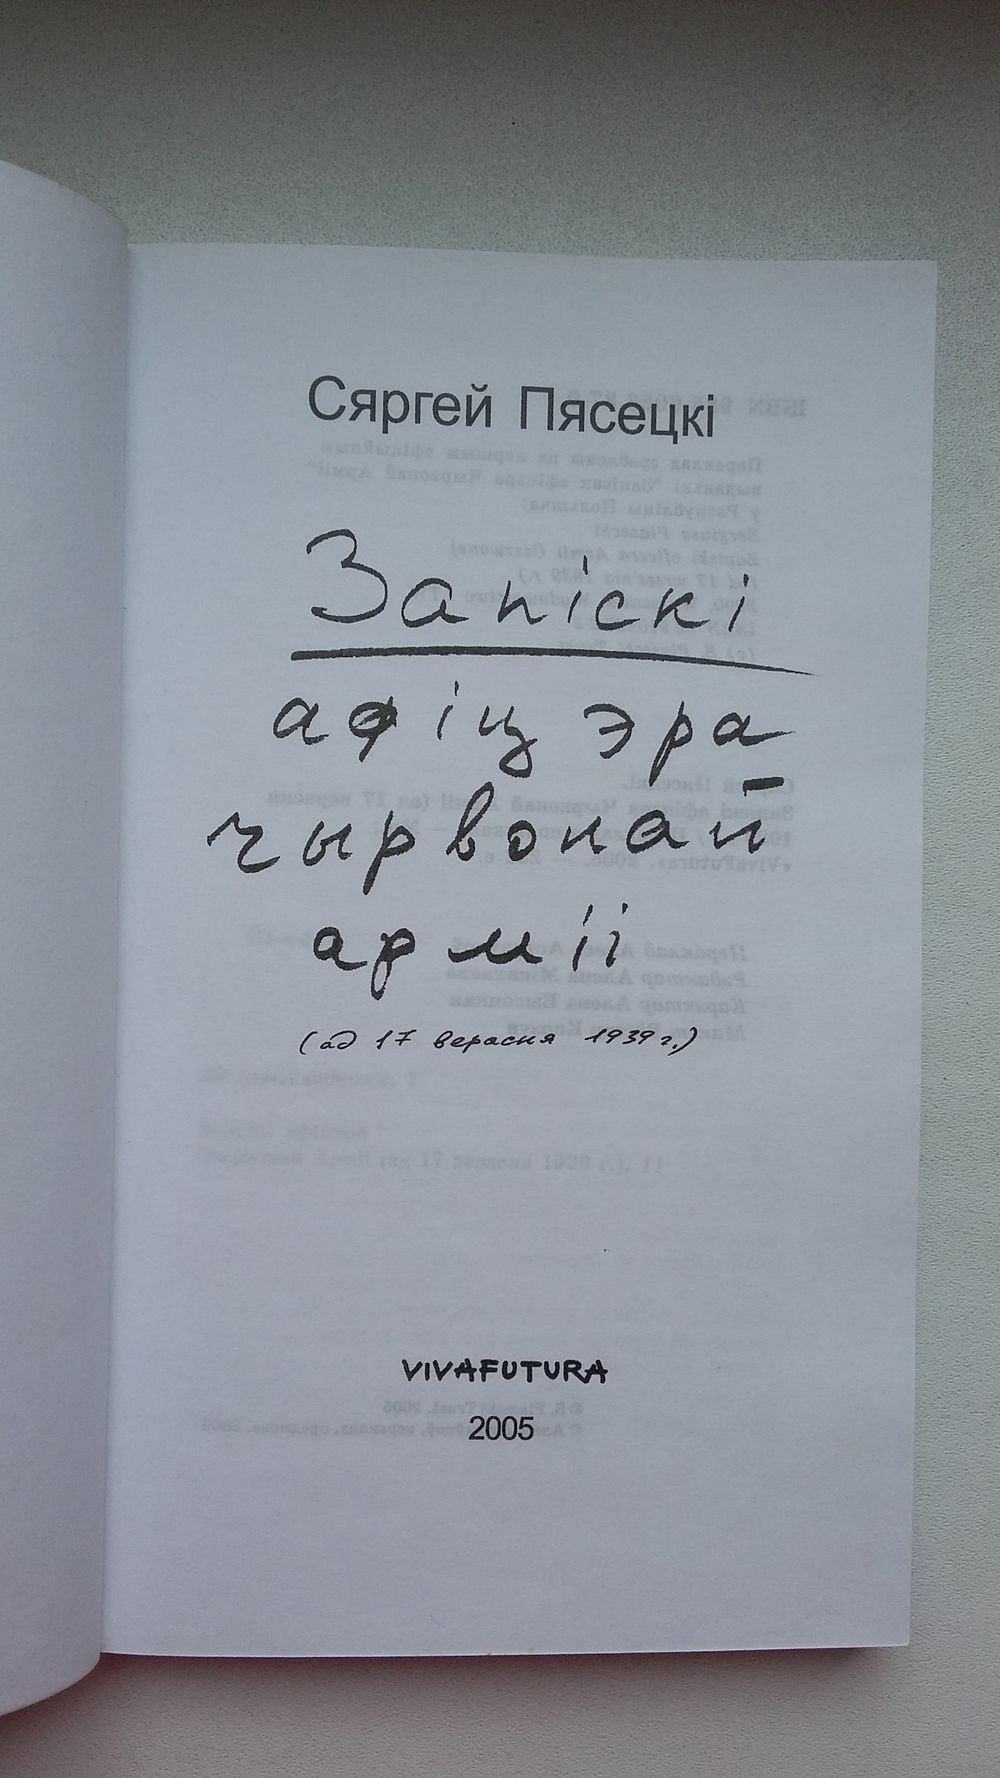 Сяргей Пясецкі
Запіскі
афіцэра
чырвонай
арміі
(ад 17 верасня 1939 г.)
VIVAFUTURA
2005